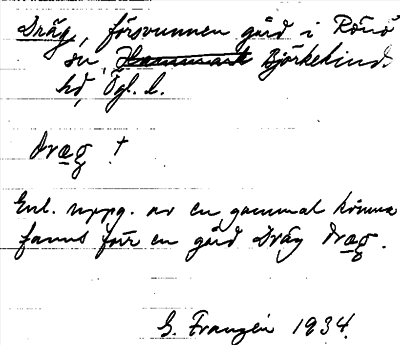 Dräg, försvunnen gård i Rönö
sn, Hammark Björkekinds
hd, Ögl. l.
dræg †
Enl. uppg. av en gammal kvinna
fanns förr en gård Dräg dræg.
G. Franzén 1934.